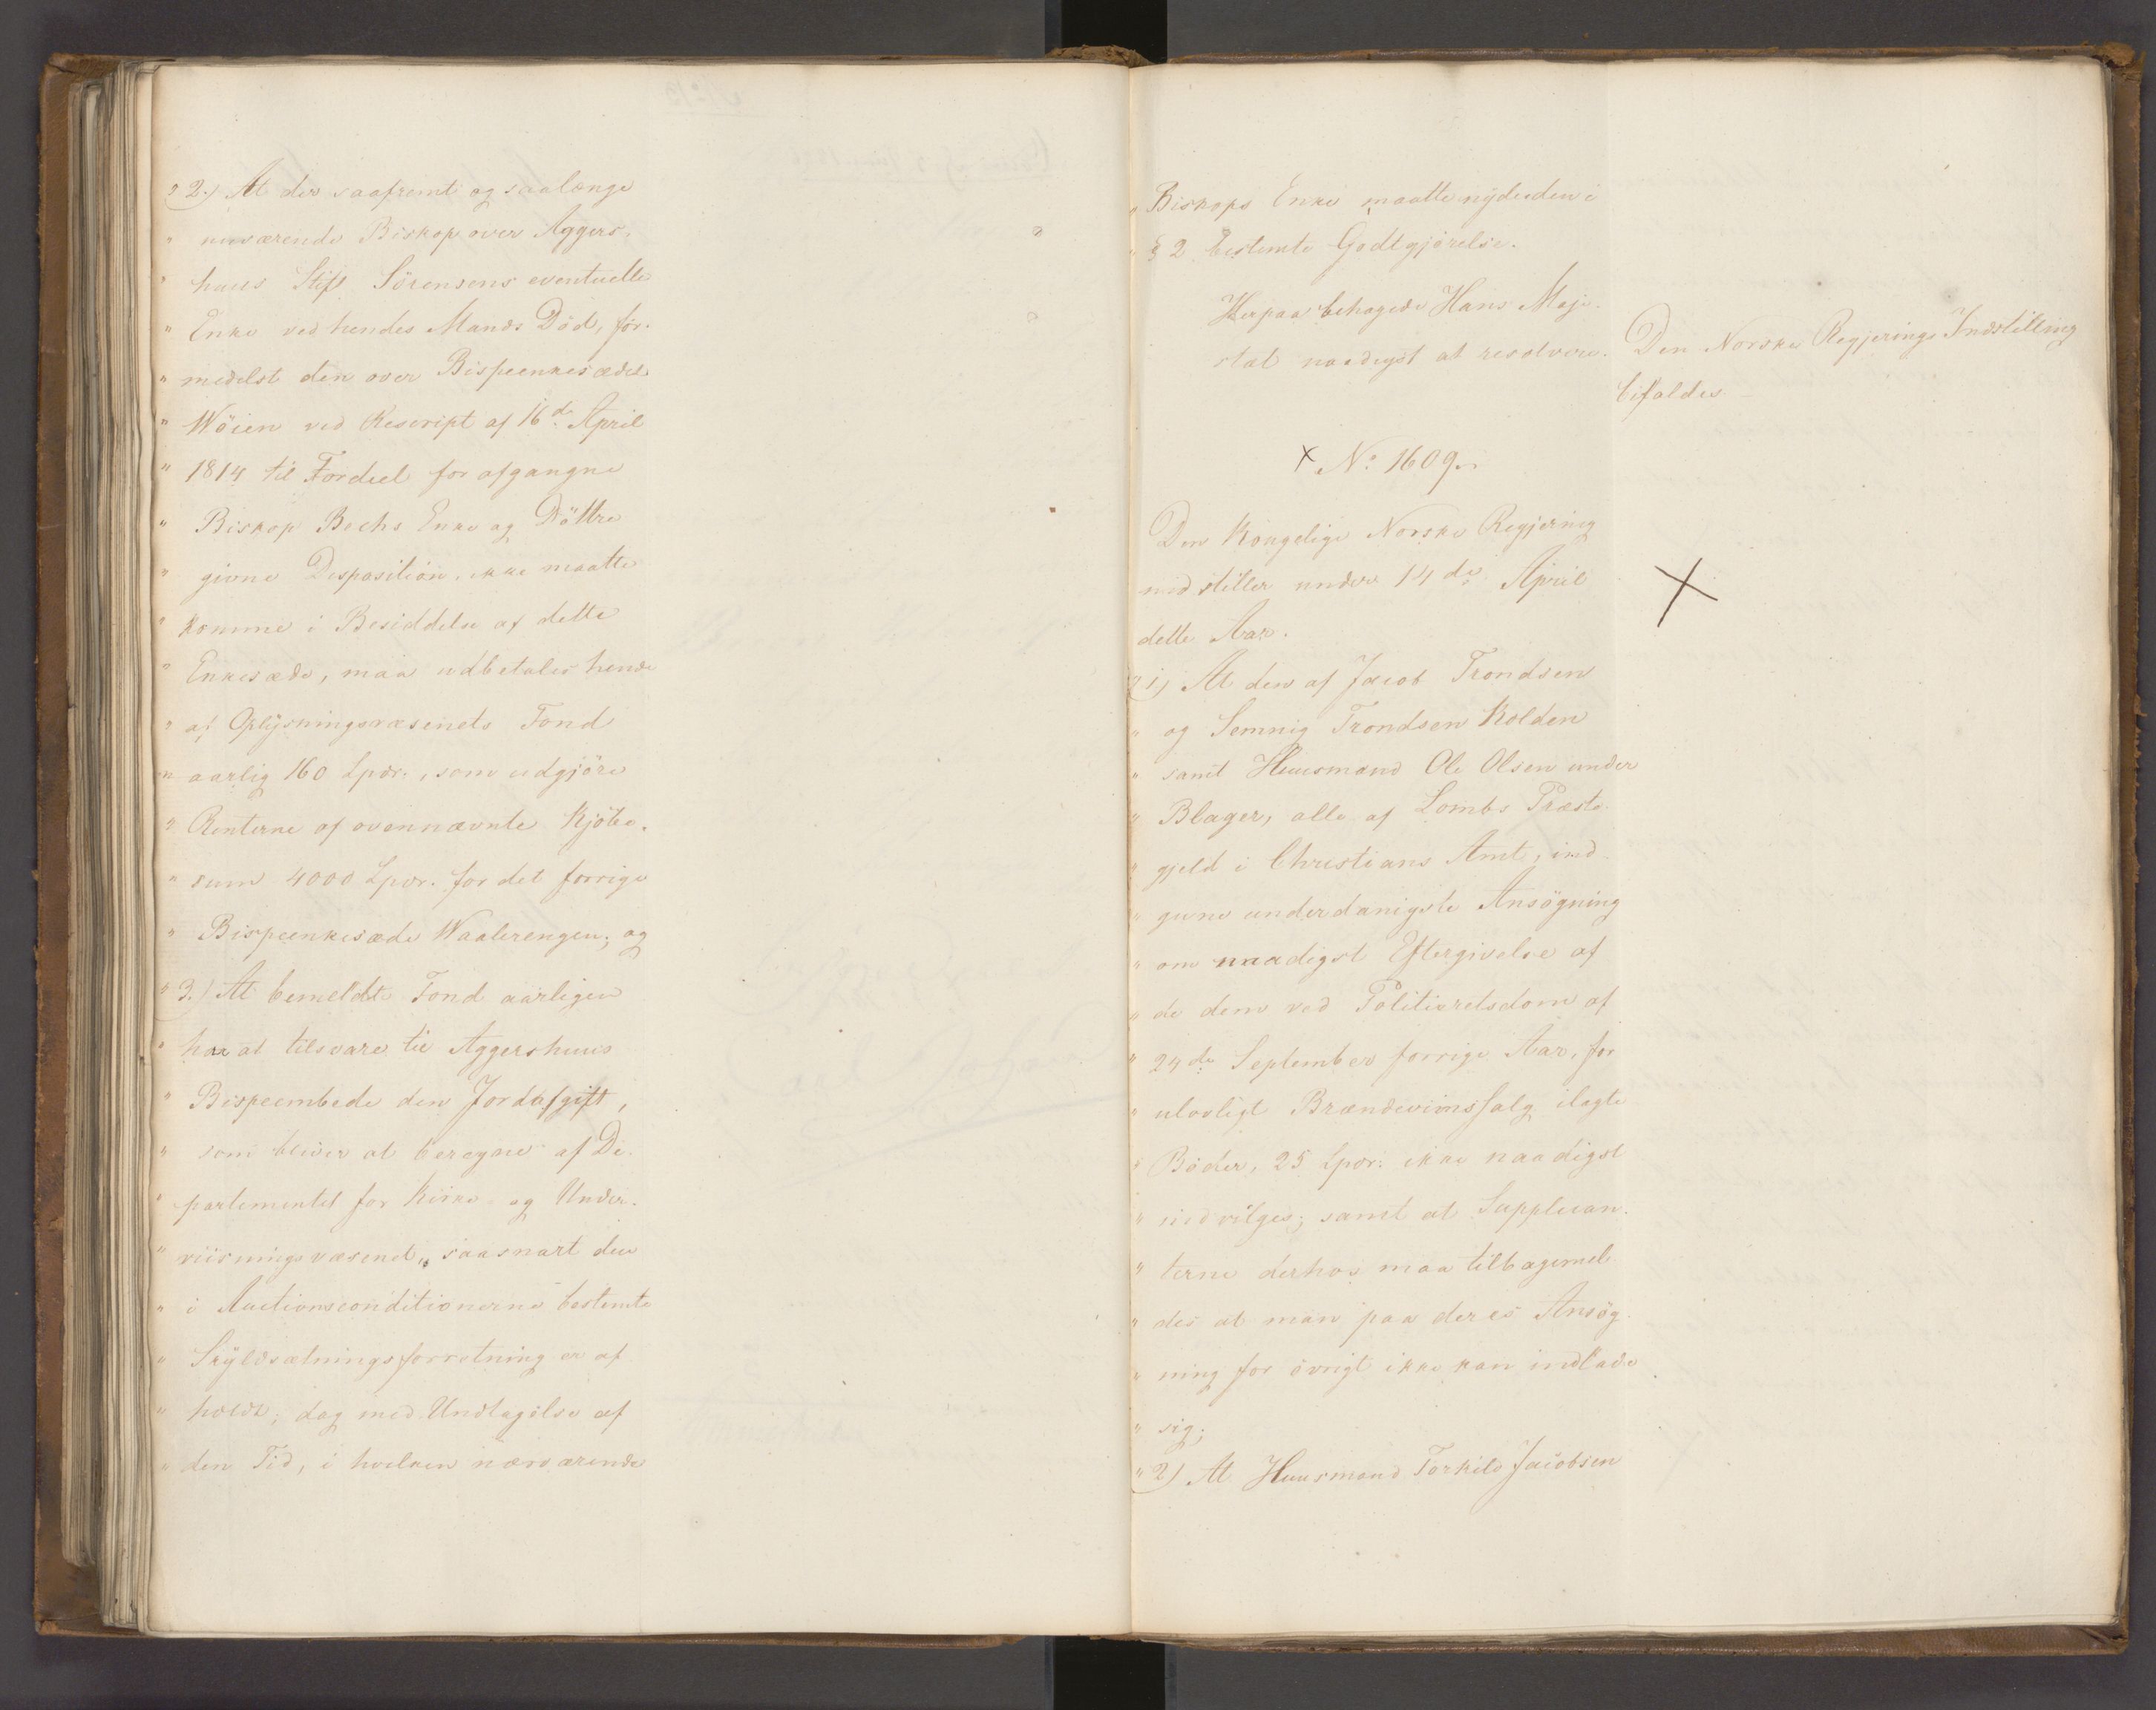 "2.) At der saafremt og saalænge
" nuværende Biskop over Aggers-
" huus Stift Sörensens eventuelle
" Enke ved hendes Mands Död, for-
" medelst den over Bispeenkesædet
" Wöien ved Rescript af 16de April
" 1814 til Fordeel for afgangne
" Biskop Bechs Enke og Döttre
" givne Disposition, ikke maatte
" komme i Besiddelse af dette
" Enkesæde, maa udbetales hende
" af Oplysningsvæsenets Fond
" aarlig 160 Spdr., som udgjöre
" Renterne af ovennævnte Kjöbe-
" sum 4000 Spdr. for det forrige
" Bispeenkesæde Waalerengen; og
"3.) At bemeldte Fond aarligen
" har at tilsvare til Aggershuus
" Bispeembede den Jordafgift,
" som bliver at beregne af De-
" partementet for Kirke- og Under-
" viisningsvæsenet, saasnart den
" i Auctionsconditionerne bestemte
" Skyldsætningsforretning er af-
" holdt; dog med Undtagelse af
" den Tid, i hvilken nærværende
" Biskops Enke maatte nyde den i
" § 2 bestemte Godtgjörelse.
Herpaa behagede Hans Maje-
stæt naadigst at resolvere.
Den Norske Regjerings Indstilling
bifaldes.
× No. 1609.
Den Kongelige Norske Regjering
indstiller under 14de April
dette Aar.
"1) At den af Jacob Trondsen
" og Semnig Trondsen Kolden
" samt Huusmand Ole Olsen under
" Blager, alle af Lombs Præste-
" gjeld i Christians Amt, ind-
" givne underdanigste Ansögning
" om naadigst Eftergivelse af
" de dem ved Politieretsdom af
" 24de September forrige Aar, for
" ulovligt Brændeviinssalg ilagte
" Böder, 25 Spdr. ikke naadigst
" indvilges; samt at Supplican-
" terne derhos maa tilbagemel-
" des at man paa deres Ansög-
" ning for övrigt ikke kan indlade
" sig;
"2) At Huusmand Torkild Jacobsen